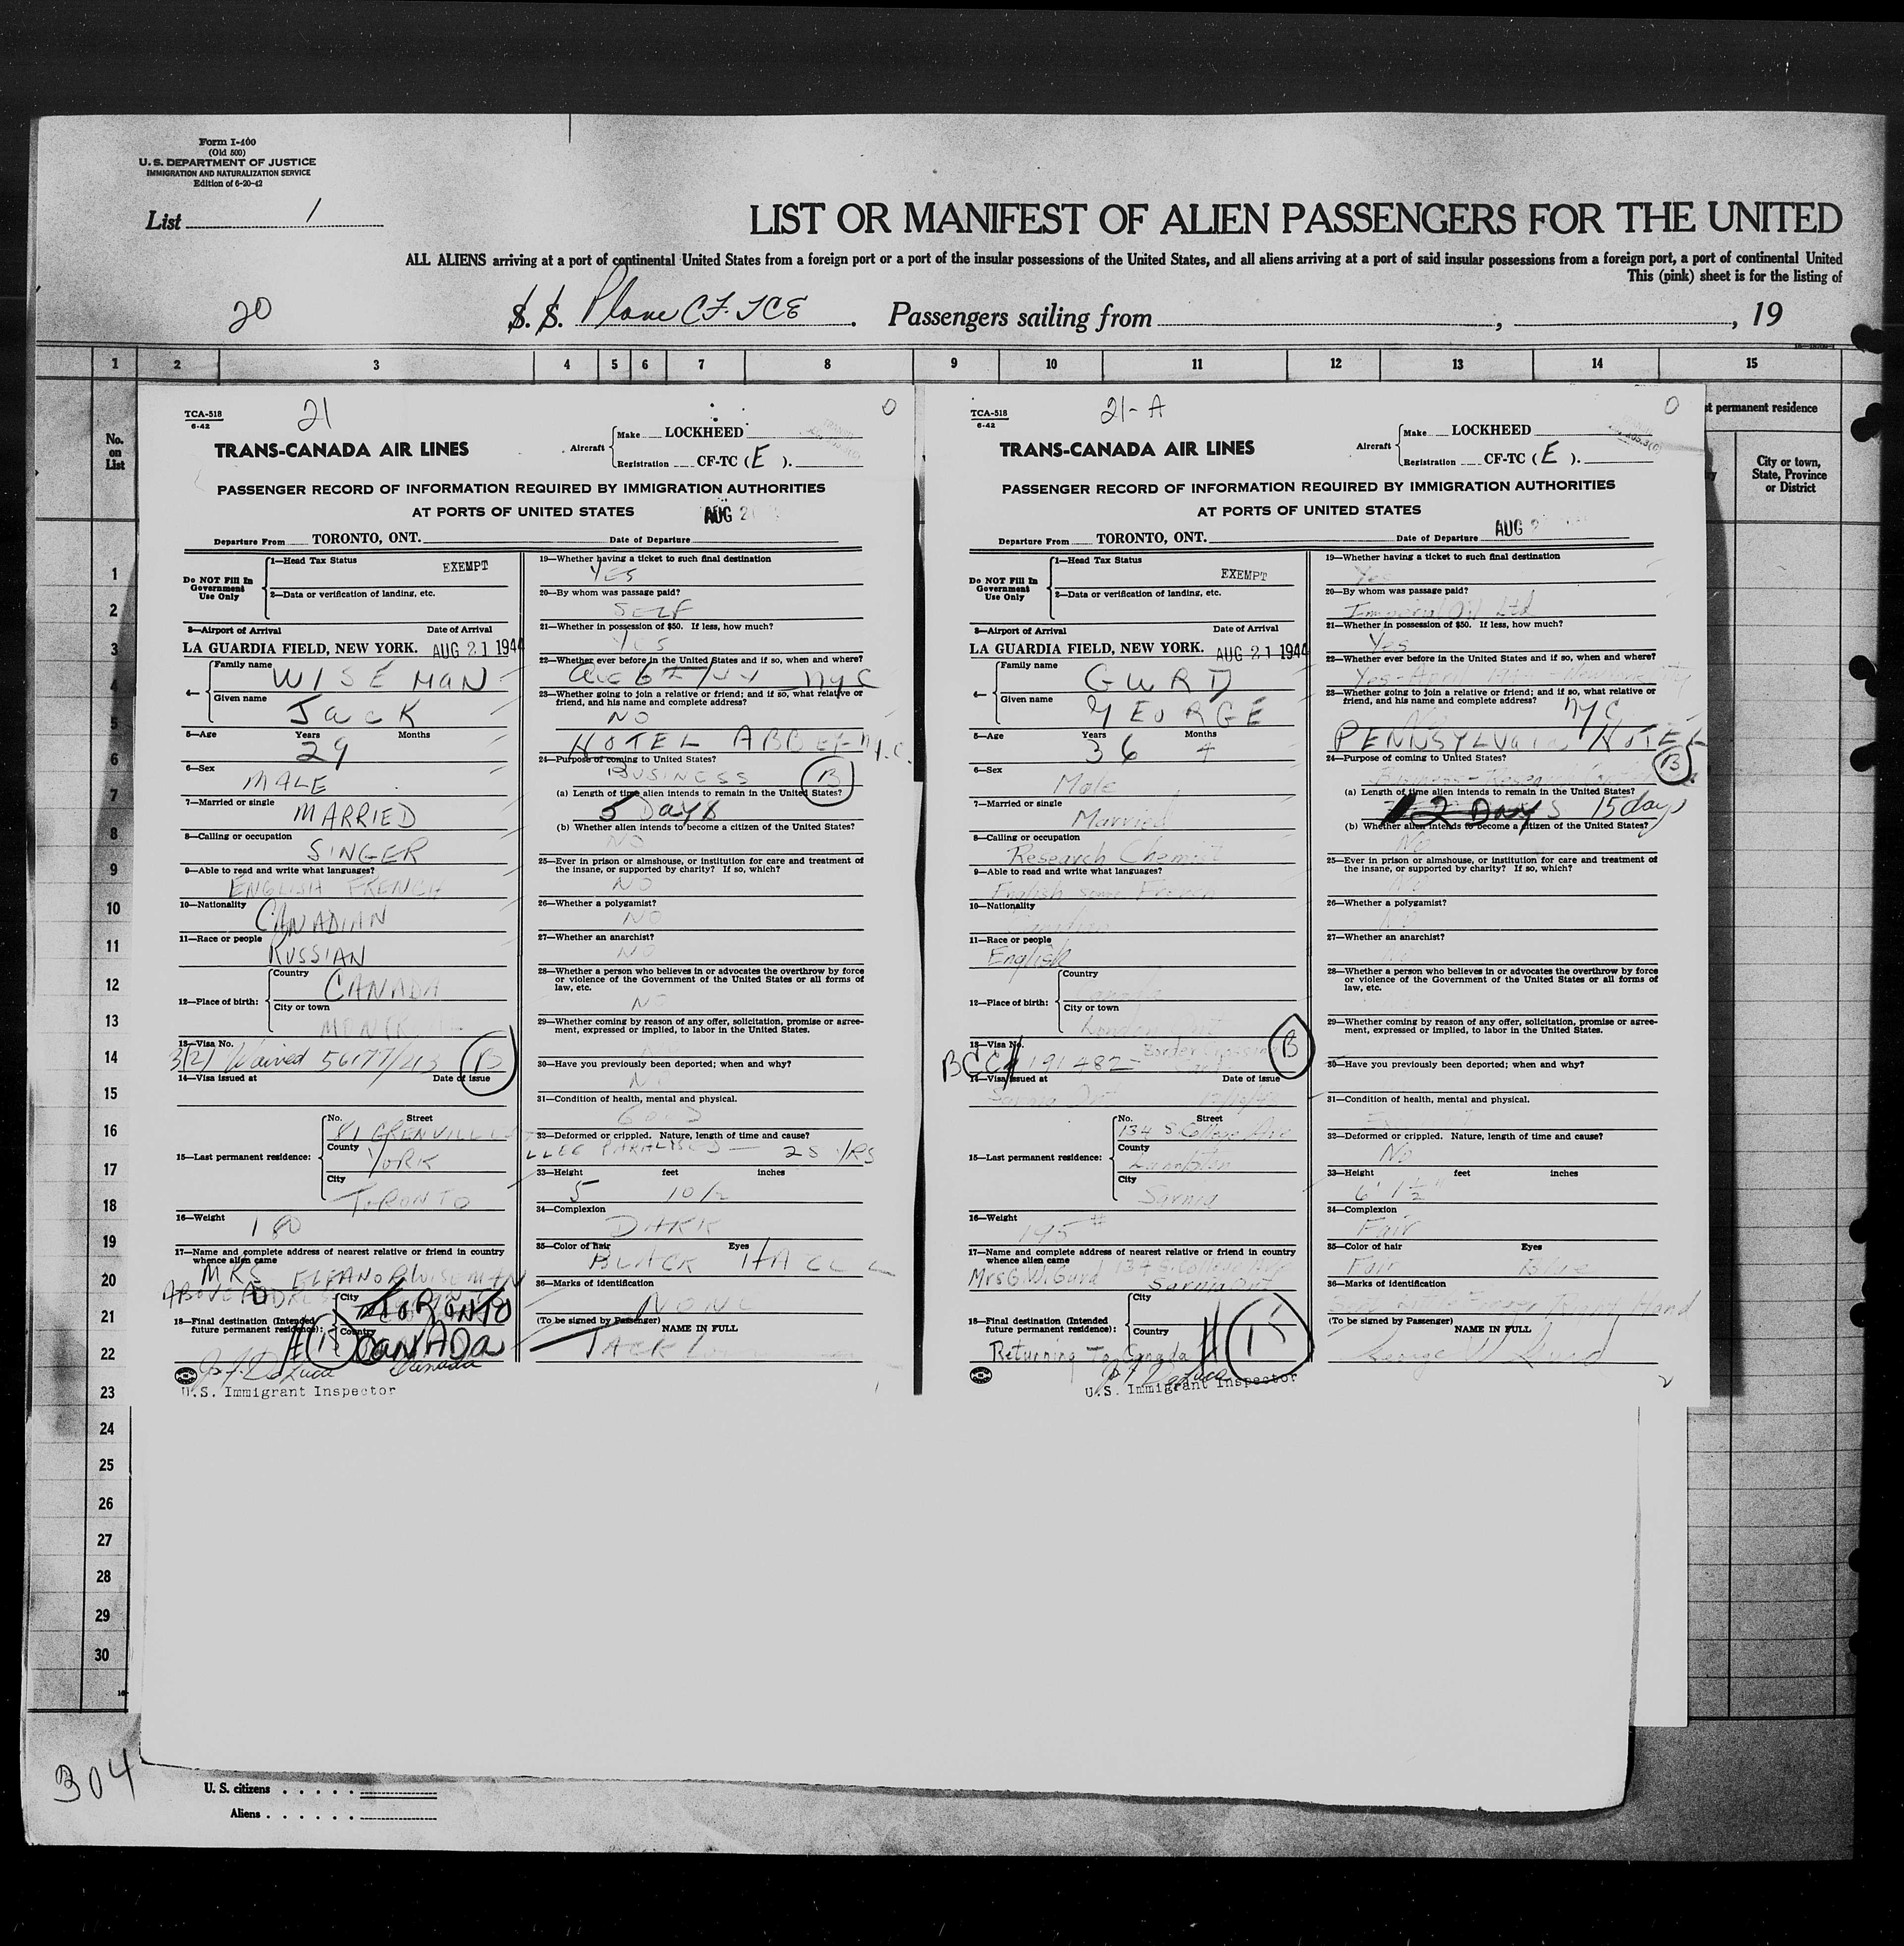 Form I-400
(Old 500)
U. S. DEPARTMENT OF JUSTICE
IMMIGRATION AND NATURALIZATION SERVICE
Edition of 6-20-42
List 1
LIST OR MANIFEST OF ALIEN PASSENGERS FOR THE UNITED
ALL ALIENS arriving at a port of continental United States from a foreign port or a port of the insular possessions of the United States, and all aliens arriving at a port of said insular possessions from a foreign port, a port of continental United
This (pink) sheet is for the listing of
20 S. S. Plane CF. TCE. Passengers sailing from , , 19
1 2 3 4 5 6 7 8 9 10 11 12 13 14 15
No. on List
t permanent residence
City or town, State, Province or District
TCA-518
6-42
21
0
TRANS-CANADA AIR LINES
Aircraft
Make LOCKHEED
Registration CF-TC (E).
PASSENGER RECORD OF INFORMATION REQUIRED BY IMMIGRATION AUTHORITIES
AT PORTS OF UNITED STATES
AUG 21
Departure From TORONTO, ONT. Date of Departure
Do NOT Fill In Government Use Only
1—Head Tax Status EXEMPT
2—Data or verification of landing, etc.
3—Airport of Arrival Date of Arrival
LA GUARDIA FIELD, NEW YORK. AUG 21 1944
4—
Family name WISEMAN
Given name JACK
5—Age Years 29 Months
6—Sex MALE
7—Married or single MARRIED
8—Calling or occupation SINGER
9—Able to read and write what languages?
ENGLISH FRENCH
10—Nationality CANADIAN
11—Race or people RUSSIAN
12—Place of birth:
Country CANADA
City or town
13—Visa No.
3(2) Waived 56177/413 B
14—Visa issued at Date of issue
15—Last permanent residence:
No. Street 81 GRENVILLE
County YORK
City TORONTO
16—Weight 180
17—Name and complete address of nearest relative or friend in country whence alien came
MRS ELEANOR WISEMAN
ABOVE ADDRESS
18—Final destination (Intended future permanent residence):
City TORONTO
Country CANADA
U.S. Immigrant Inspector
19—Whether having a ticket to such final destination
YES
20—By whom was passage paid?
SELF
21—Whether in possession of $50. If less, how much?
YES
22—Whether ever before in the United States and if so, when and where?
NYC
23—Whether going to join a relative or friend; and if so, what relative or friend, and his name and complete address?
NO
HOTEL ABBEY N.Y.C.
24—Purpose of coming to United States?
BUSINESS B
(a) Length of time alien intends to remain in the United States?
5 Days
(b) Whether alien intends to become a citizen of the United States?
NO
25—Ever in prison or almshouse, or institution for care and treatment of the insane, or supported by charity? If so, which?
NO
26—Whether a polygamist?
NO
27—Whether an anarchist?
NO
28—Whether a person who believes in or advocates the overthrow by force or violence of the Government of the United States or all forms of law, etc.
NO
29—Whether coming by reason of any offer, solicitation, promise or agreement, expressed or implied, to labor in the United States.
30—Have you previously been deported; when and why?
NO
31—Condition of health, mental and physical.
GOOD
32—Deformed or crippled. Nature, length of time and cause?
LLEG PARALISED — 28 YRS
33—Height feet inches
5 10 1/2
34—Complexion
DARK
35—Color of hair Eyes
BLACK HAZEL
36—Marks of identification
NONE
(To be signed by Passenger) NAME IN FULL
JACK
TCA-518
6-42
21-A
0
TRANS-CANADA AIR LINES
Aircraft
Make LOCKHEED
Registration CF-TC (E).
PASSENGER RECORD OF INFORMATION REQUIRED BY IMMIGRATION AUTHORITIES
AT PORTS OF UNITED STATES
AUG
Departure From TORONTO, ONT. Date of Departure
Do NOT Fill In Government Use Only
1—Head Tax Status EXEMPT
2—Data or verification of landing, etc.
3—Airport of Arrival Date of Arrival
LA GUARDIA FIELD, NEW YORK. AUG 21 1944
4—
Family name GURD
Given name GEORGE
5—Age Years 36 Months 4
6—Sex Male
7—Married or single Married
8—Calling or occupation
Research Chemist
9—Able to read and write what languages?
English some French
10—Nationality
11—Race or people
English
12—Place of birth:
Country
City or town London Ont
13—Visa No.
BCC# 191482 Border Crossing B
14—Visa issued at Date of issue
Sarnia Ont
15—Last permanent residence:
No. Street 134 S. College Ave
County Lambton
City Sarnia
16—Weight 195#
17—Name and complete address of nearest relative or friend in country whence alien came
Mrs G. W. Gurd 134 S. College Ave
Sarnia Ont
18—Final destination (Intended future permanent residence):
City
Country
Returning To Canada
U.S. Immigrant Inspector
19—Whether having a ticket to such final destination
Yes
20—By whom was passage paid?
Imperial Oil Ltd
21—Whether in possession of $50. If less, how much?
Yes
22—Whether ever before in the United States and if so, when and where?
23—Whether going to join a relative or friend; and if so, what relative or friend, and his name and complete address?
NYC
PENNSYLVAnia HOTEL
24—Purpose of coming to United States?
B
(a) Length of time alien intends to remain in the United States?
12 Days 15 days
(b) Whether alien intends to become a citizen of the United States?
No
25—Ever in prison or almshouse, or institution for care and treatment of the insane, or supported by charity? If so, which?
26—Whether a polygamist?
No
27—Whether an anarchist?
28—Whether a person who believes in or advocates the overthrow by force or violence of the Government of the United States or all forms of law, etc.
29—Whether coming by reason of any offer, solicitation, promise or agreement, expressed or implied, to labor in the United States.
30—Have you previously been deported; when and why?
31—Condition of health, mental and physical.
32—Deformed or crippled. Nature, length of time and cause?
No
33—Height feet inches
6' 1 1/2"
34—Complexion
Fair
35—Color of hair Eyes
Fair Blue
36—Marks of identification
Right Hand
(To be signed by Passenger) NAME IN FULL
George W Gurd
1
2
3
4
5
6
7
8
9
10
11
12
13
14
15
16
17
18
19
20
21
22
23
24
25
26
27
28
29
30
304
U. S. citizens
Aliens